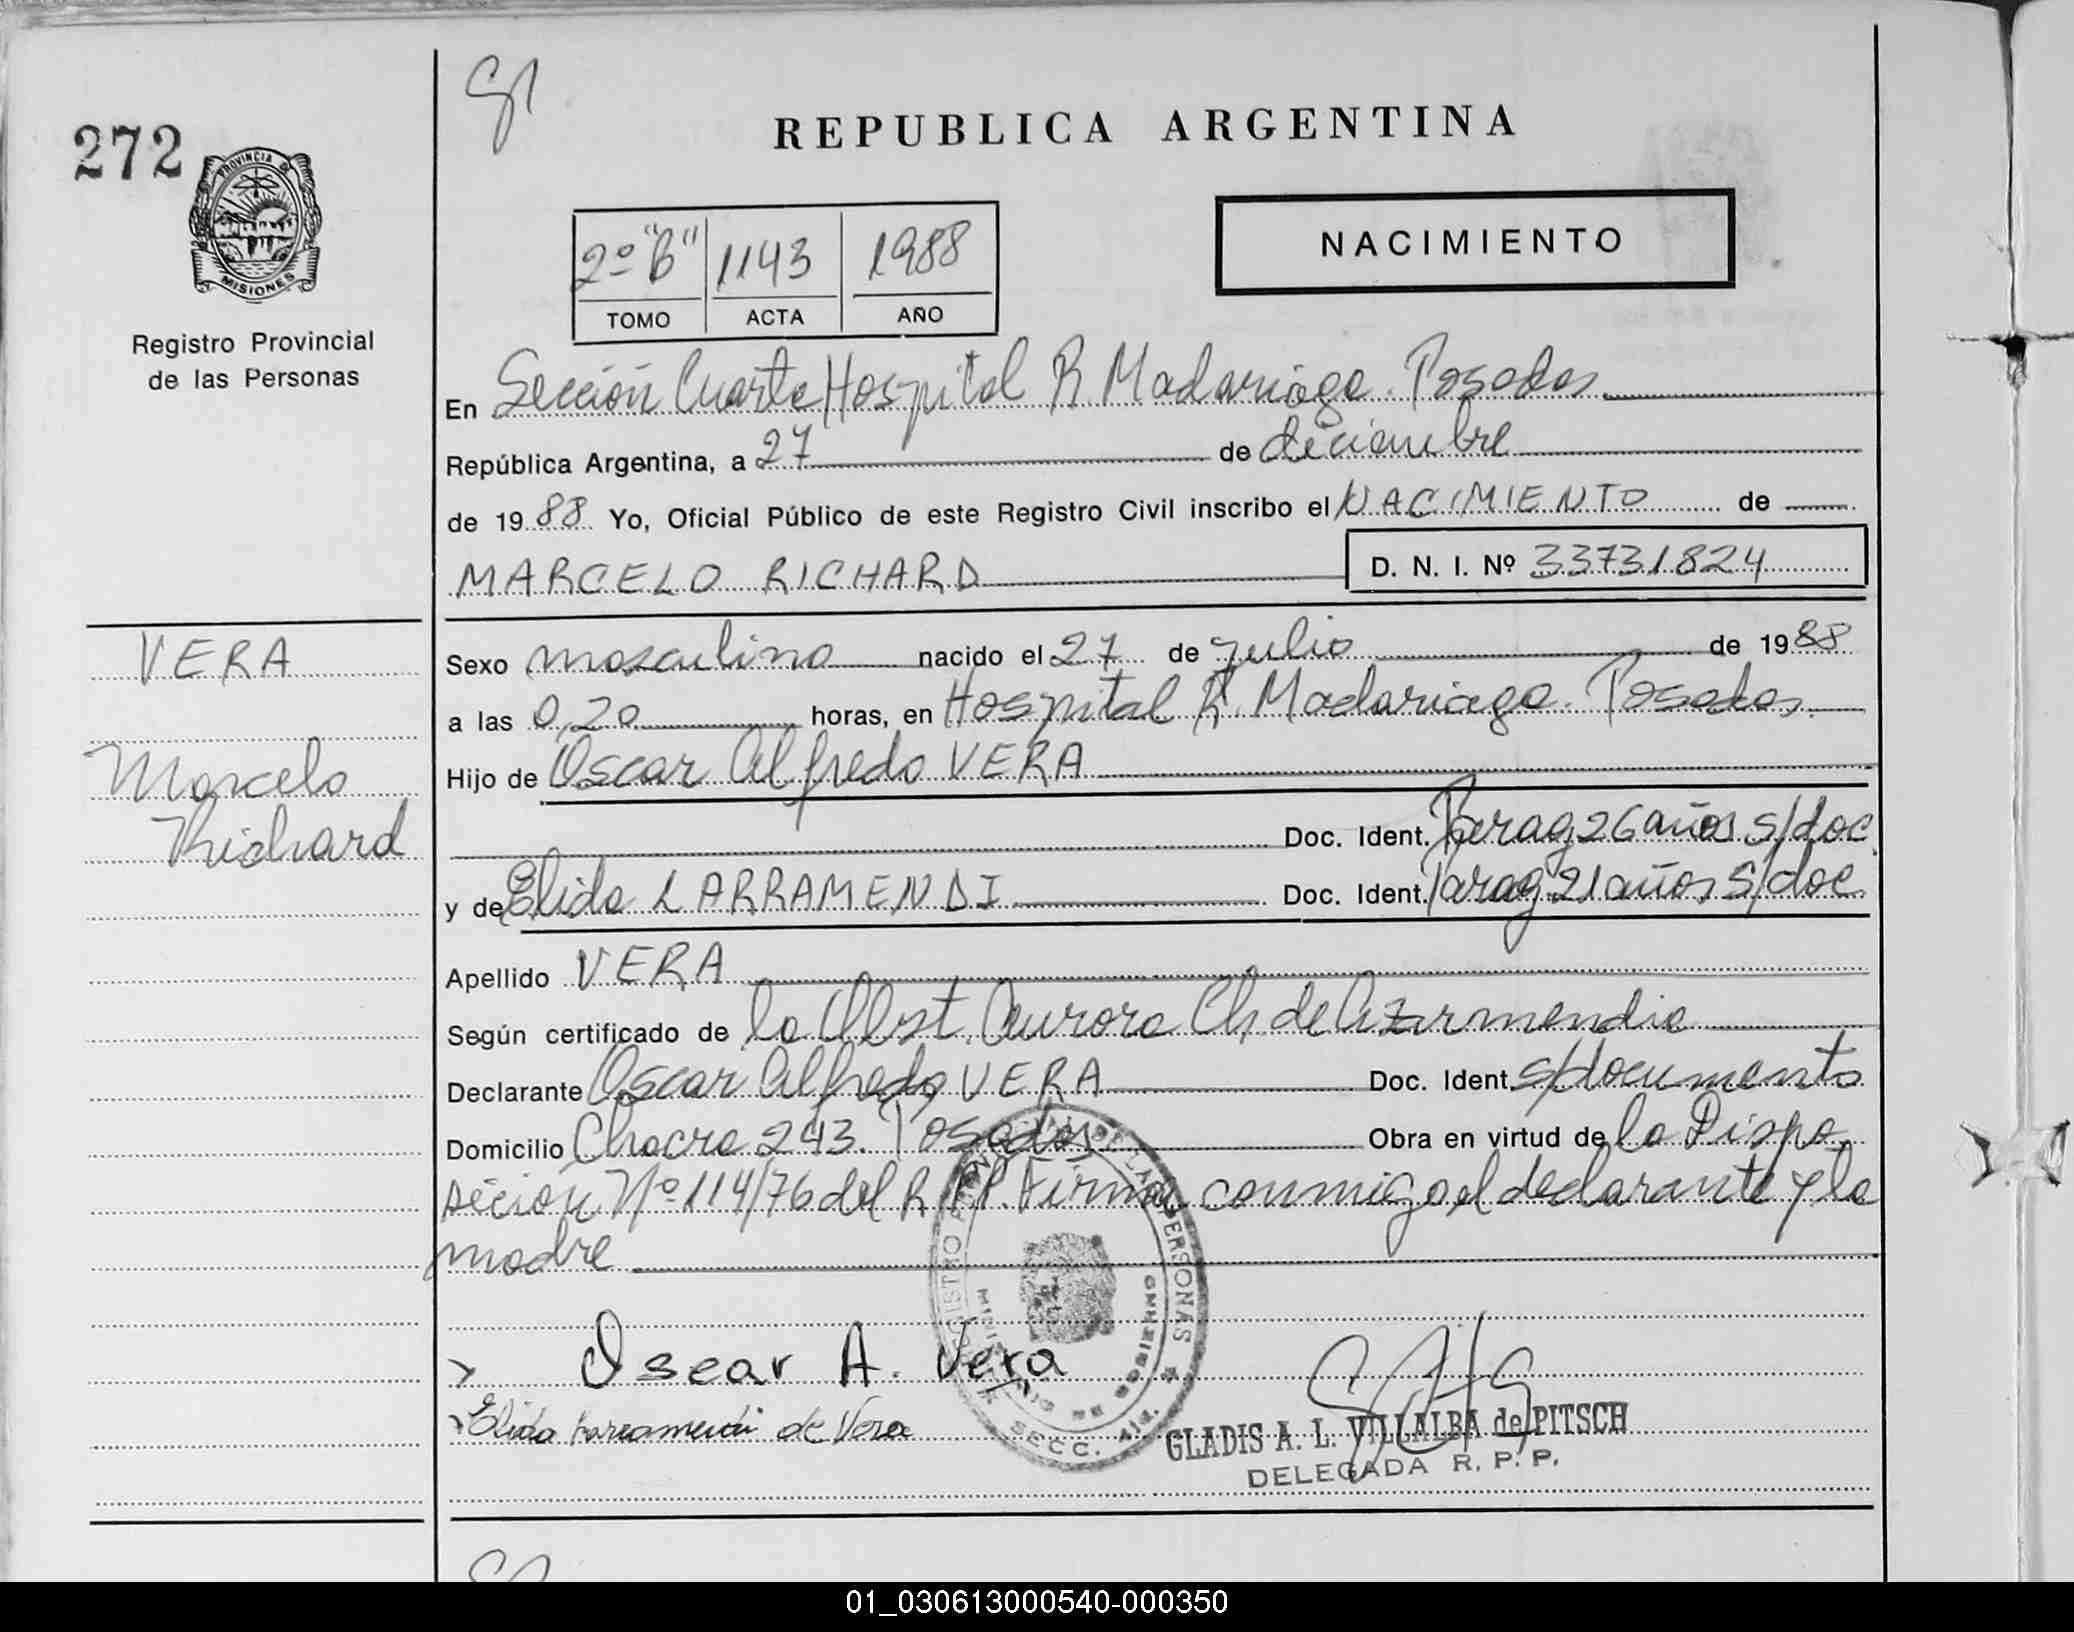 272
PROVINCIA D
MISIONES
Registro Provincial
de las Personas
REPUBLICA ARGENTINA
2º "B" 1143 1988
TOMO ACTA AÑO
NACIMIENTO
En Sección Cuarta Hospital R. Madariaga. Posadas
República Argentina, a 27 de diciembre
de 1988 Yo, Oficial Público de este Registro Civil inscribo el NACIMIENTO de
MARCELO RICHARD D. N. I. Nº 33731824
VERA
Marcelo
Richard
Sexo masculino nacido el 27 de julio de 1988
a las 0,20 horas, en Hospital R. Madariaga. Posadas
Hijo de Oscar Alfredo VERA
Doc. Ident. Parag 26 años s/doc
y de Elida LARRAMENDI Doc. Ident. Parag 21 años s/doc.
Apellido VERA
Según certificado de la Obst. Aurora Ch. de Azarmendia
Declarante Oscar Alfredo VERA Doc. Ident. s/documento
Domicilio Chacra 243. Posadas Obra en virtud de la Dispo
sición Nº 114/76 del R.P.P. Firman conmigo el declarante y la
madre
Oscar A. Vera
Elida Larramendi de Vera
DE LAS PERSONAS
SECC. 4ta.
GLADIS A. L. VILLALBA de PITSCH
DELEGADA R. P. P.
01_030613000540-000350